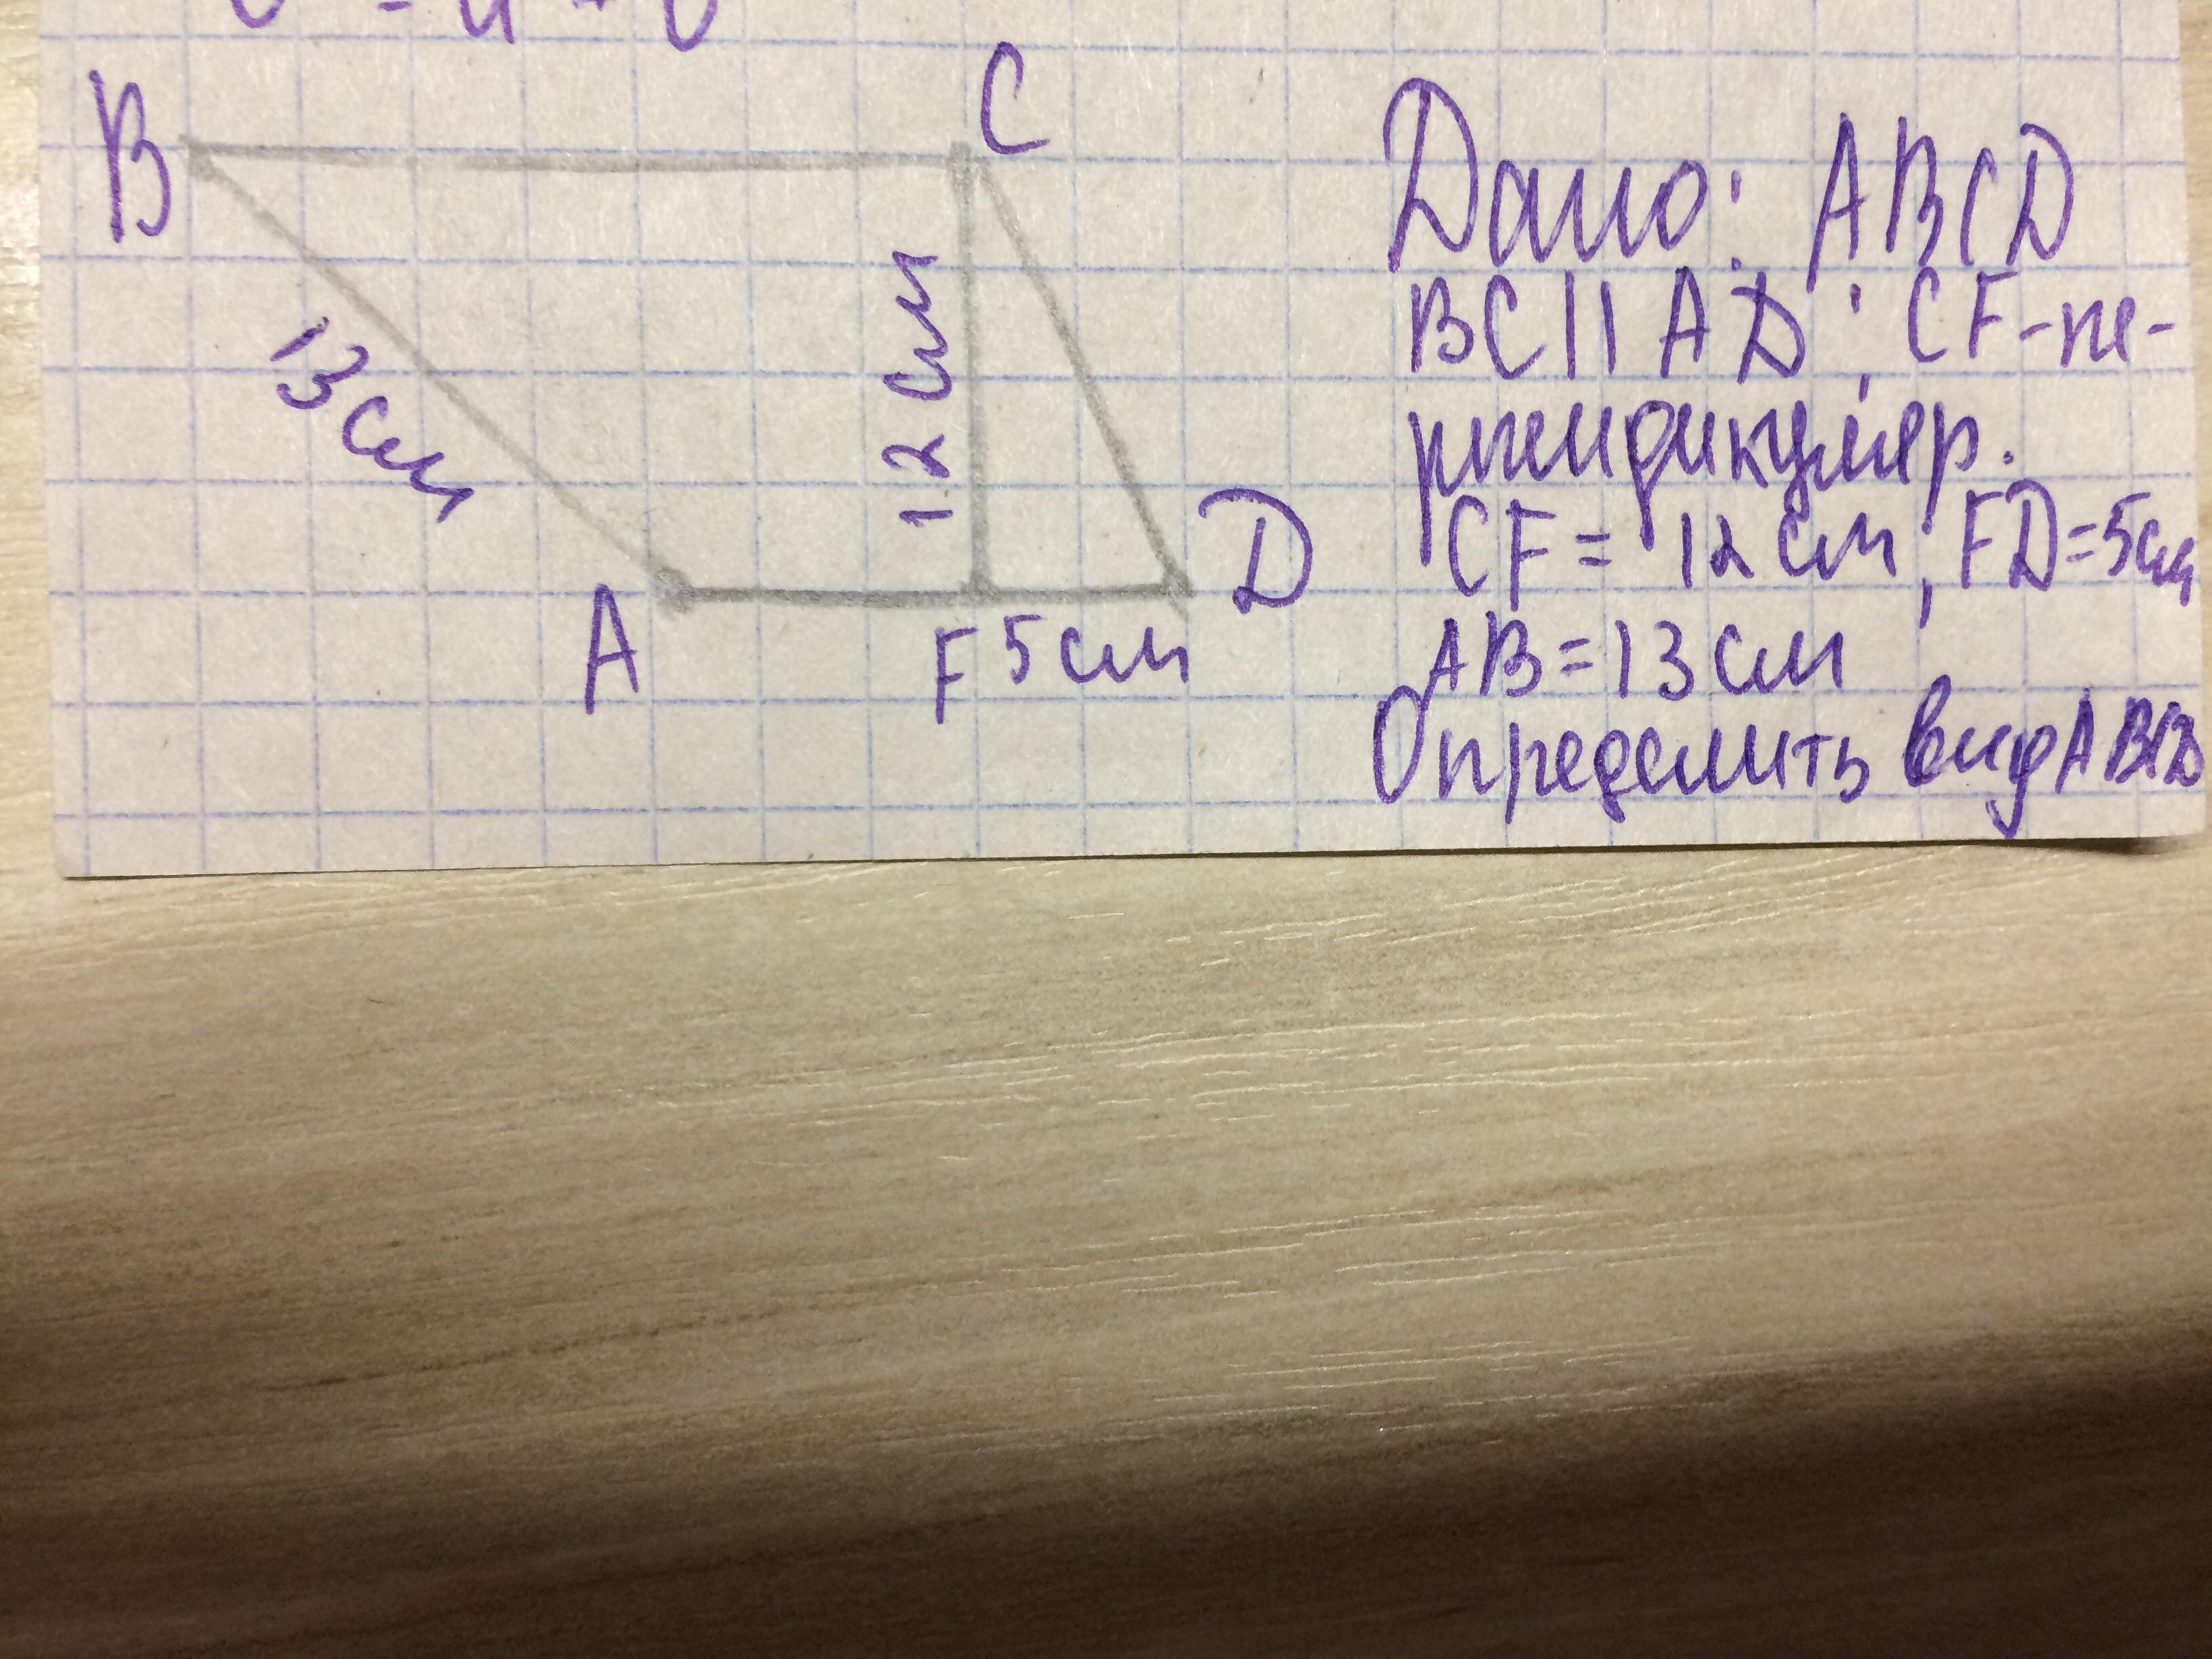 B
C
13 см
12 см
A
F 5 см
D
Дано: ABCD
BC || AD; CF - пе-
рпендикуляр.
CF = 12 см; FD = 5 см
AB = 13 см
Определить вид ABCD